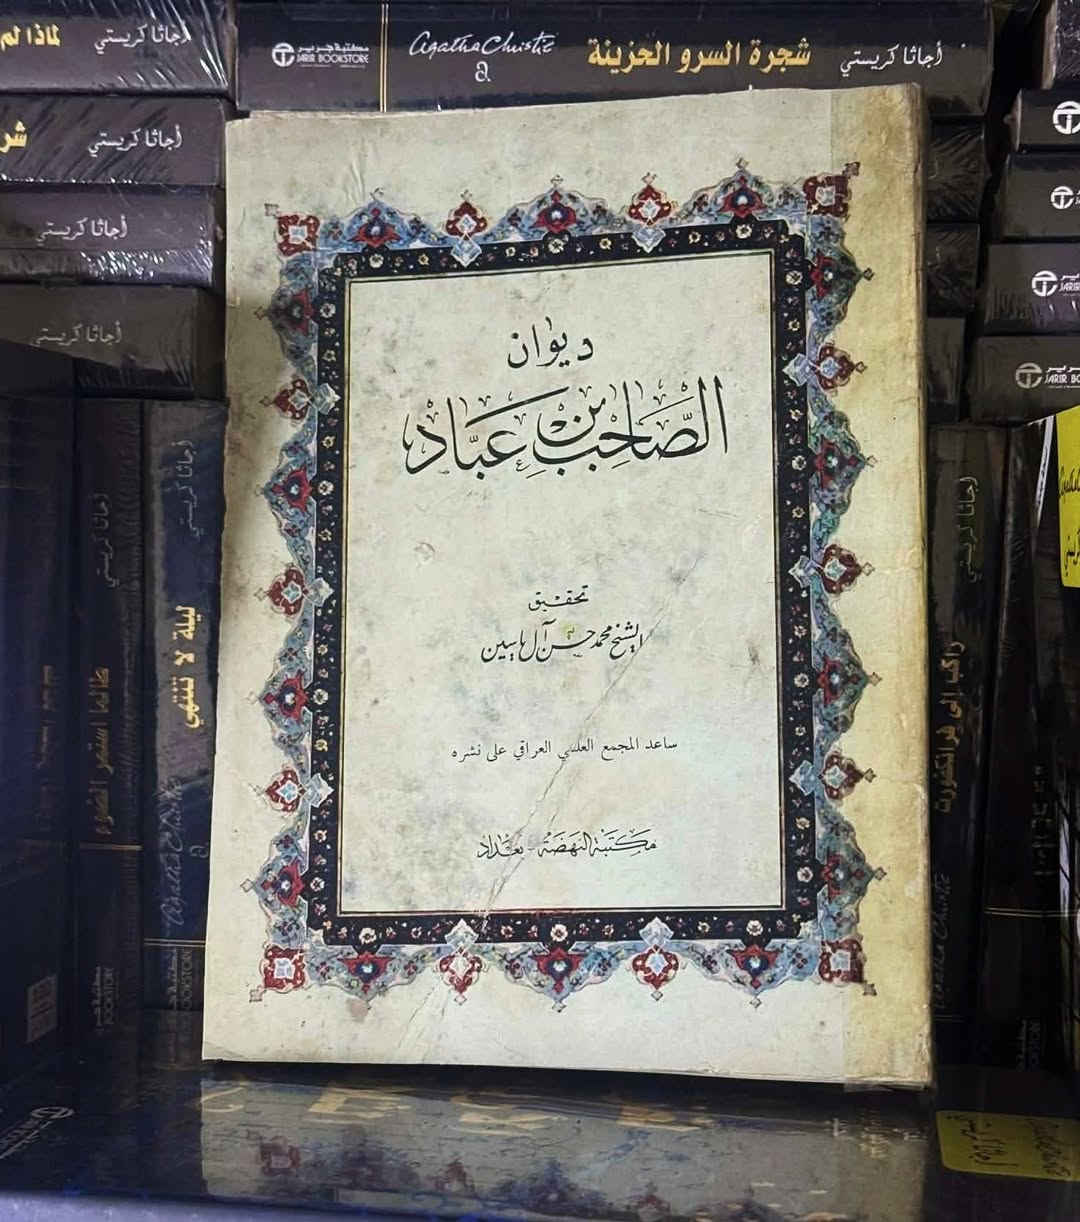 لماذا لم
أجاثا كريستي
مكتبة جرير
JARIR BOOKSTORE
Agatha Christie
a
شجرة السرو الحزينة
أجاثا كريستي
شر
أجاثا كريستي
أجاثا كريستي
أجاثا كريستي
ديوان
الصَّاحِب بن عَبَّاد
تحقيق
الشيخ محمد حسن آل ياسين
ساعد المجمع العلمي العراقي على نشره
مكتبة النهضة - بغداد
أجاثا كريستي
ليلة لا تنتهي
Agatha Christie
a
أجاثا كريستي
طالما استمر الضوء
أجاثا كريستي
راكب إلى فرانكفورت
Agatha Christie
JARIR
JARIR BO